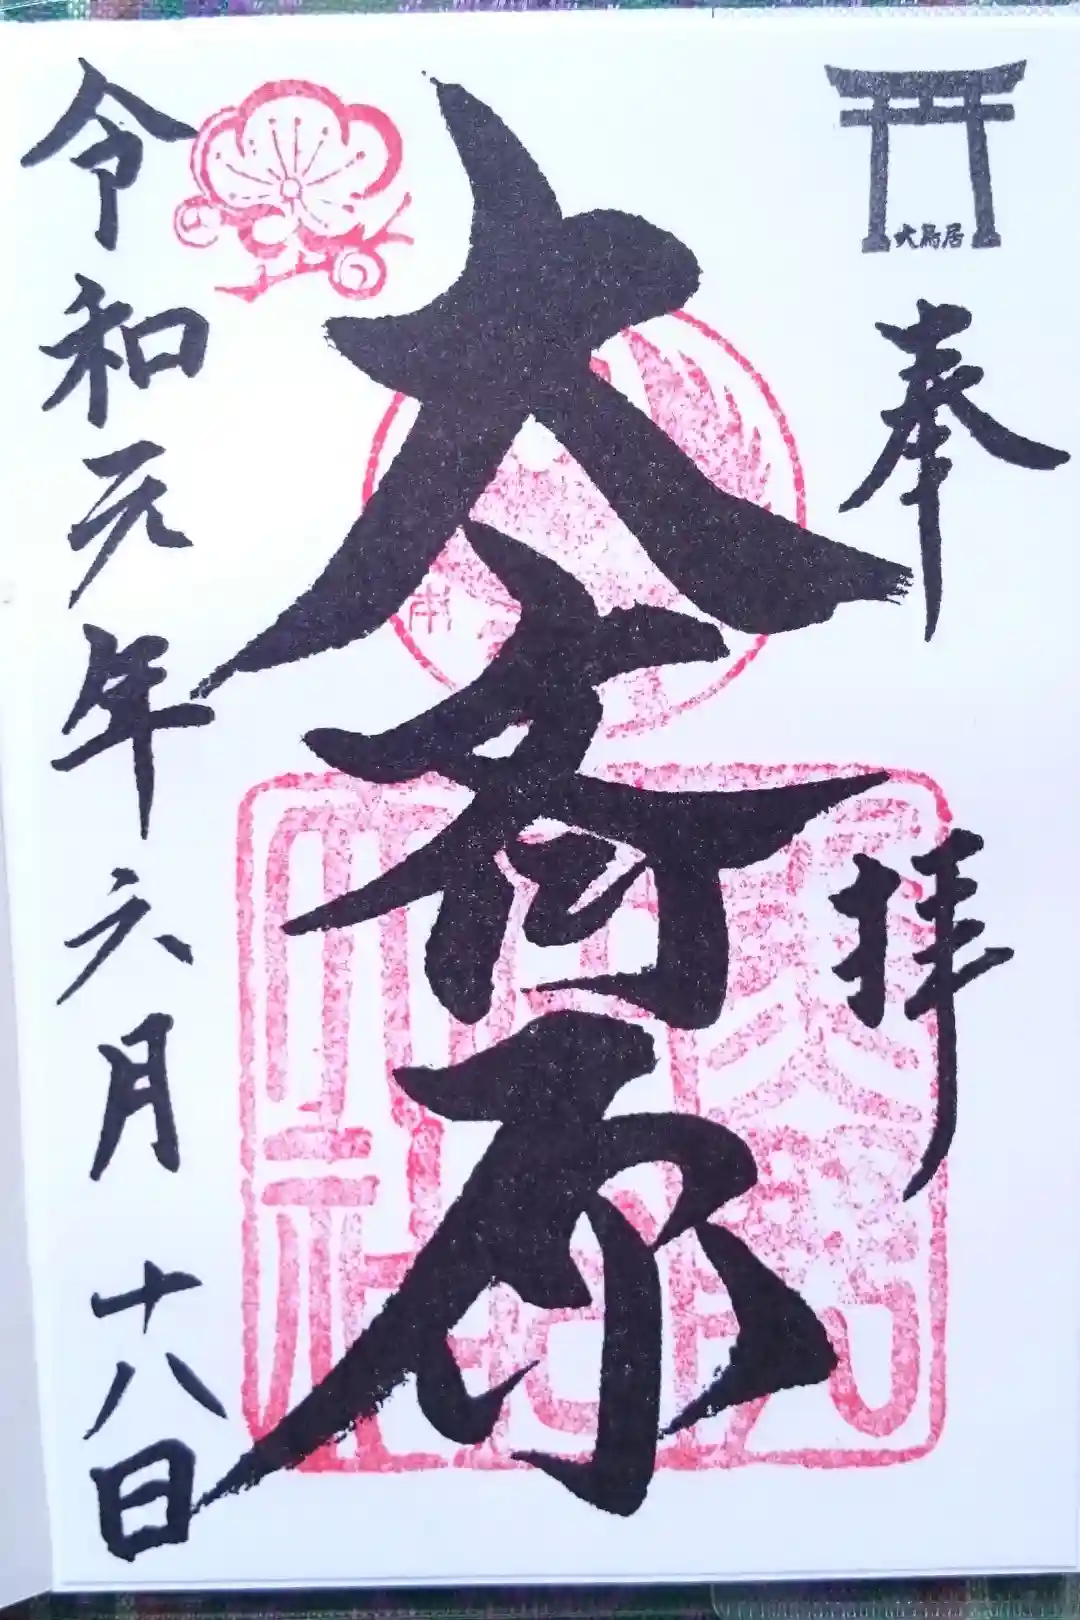 大鳥居
奉拝
大斎原
令和元年六月十八日